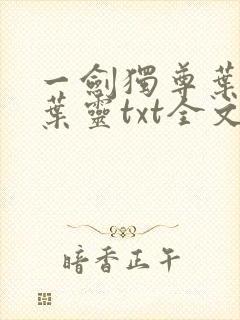 一劍獨尊葉
葉靈txt全文
暗香正午